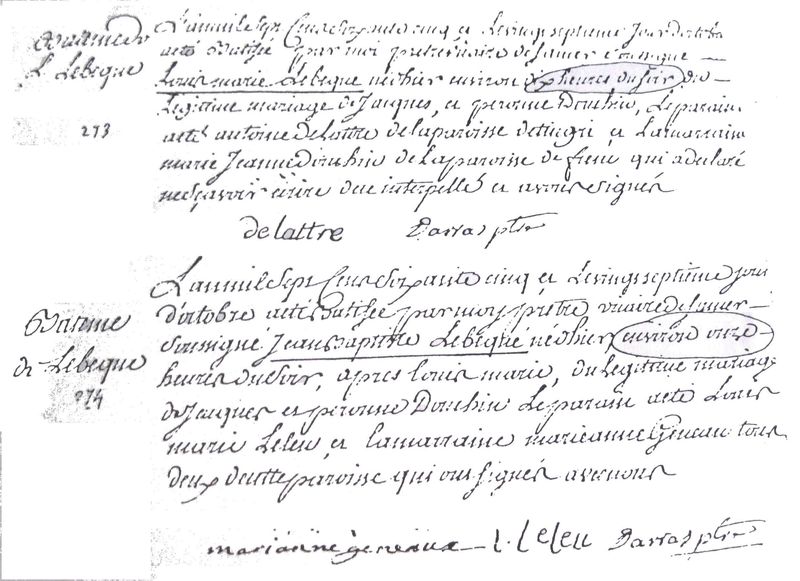 Batême de
L Lebegue
273
L'an mil Sept Cens Soixante cinq et le vingt septieme jour d'octobre
a eté Batisé par moi pretre vicaire de Samer soussigné
Louis marie Lebegue né hier environ dix heures du soir du
Legitime mariage de Jacques, et peronne Dourhin, Le parain
a eté antoine Delattre de la paroisse de tingri et La marraine
marie Jeanne Dourhin de La paroisse de qui a declaré
ne sçavoir écrire de ce interpellé et avons signés
delattre Darras ptre
Batême
de Lebegue
274
L'an mil Sept Cens Soixante cinq et Le vingt septième jour
d'octobre a eté Batisé par moy prêtre vicaire de Samer
Soussigné Jean Baptiste Lebegue né hier environ onze
heures du Soir, apres louis marie, du Legitime mariage
de Jacques et peronne Dourhin Le parain a eté Louis
marie Leleu et la marraine marieanne Geneau tous
deux de cette paroisse qui ont signés avec nous
marianne geneaux L. Leleu Darras ptre